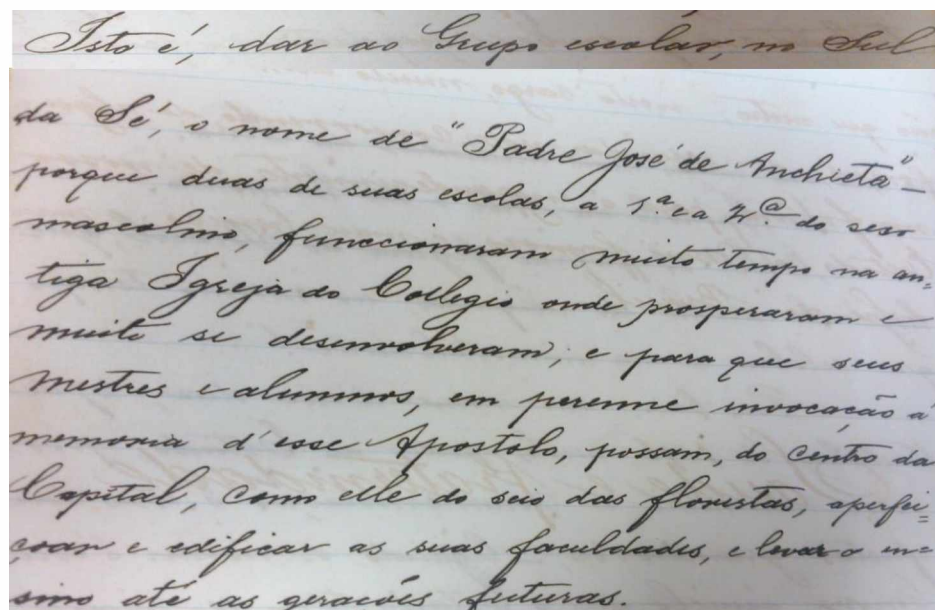 Isto é, dar ao Grupo escolar, no Sul
da Sé, o nome de "Padre José de Anchieta" –
porque duas de suas escolas, a 1.ª e a 2.ª do sexo
masculino, funccionaram muito tempo na an=
tiga Igreja do Collegio onde prosperaram e
muito se desenvolveram; e para que seus
mestres e alumnos, em perenne invocação á
memoria d'esse Apostolo, possam, do centro da
Capital, como elle do seio das florestas, aperfei=
çoar e edificar as suas faculdades, e levar o en=
sino até as gerações futuras.